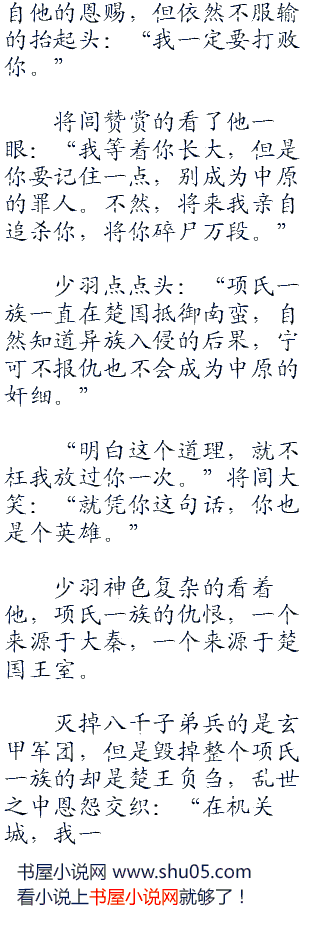 自他的恩赐，但依然不服输
的抬起头：“我一定要打败
你。”
将闾赞赏的看了他一
眼：“我等着你长大，但是
你要记住一点，别成为中原
的罪人。不然，将来我亲自
追杀你，将你碎尸万段。”
少羽点点头：“项氏一
族一直在楚国抵御南蛮，自
然知道异族入侵的后果，宁
可不报仇也不会成为中原的
奸细。”
“明白这个道理，就不
枉我放过你一次。”将闾大
笑：“就凭你这句话，你也
是个英雄。”
少羽神色复杂的看着
他，项氏一族的仇恨，一个
来源于大秦，一个来源于楚
国王室。
灭掉八千子弟兵的是玄
甲军团，但是毁掉整个项氏
一族的却是楚王负刍，乱世
之中恩怨交织：“在机关
城，我一
书屋小说网 www.shu05.com
看小说上书屋小说网就够了！